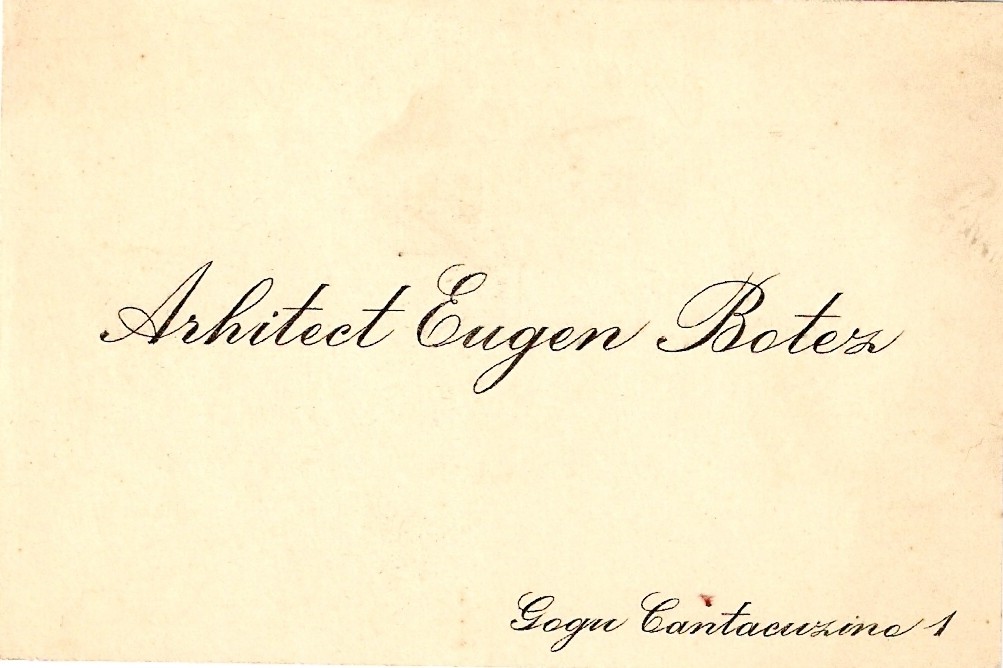 Arhitect Eugen Botez
Gogu Cantacuzino 1